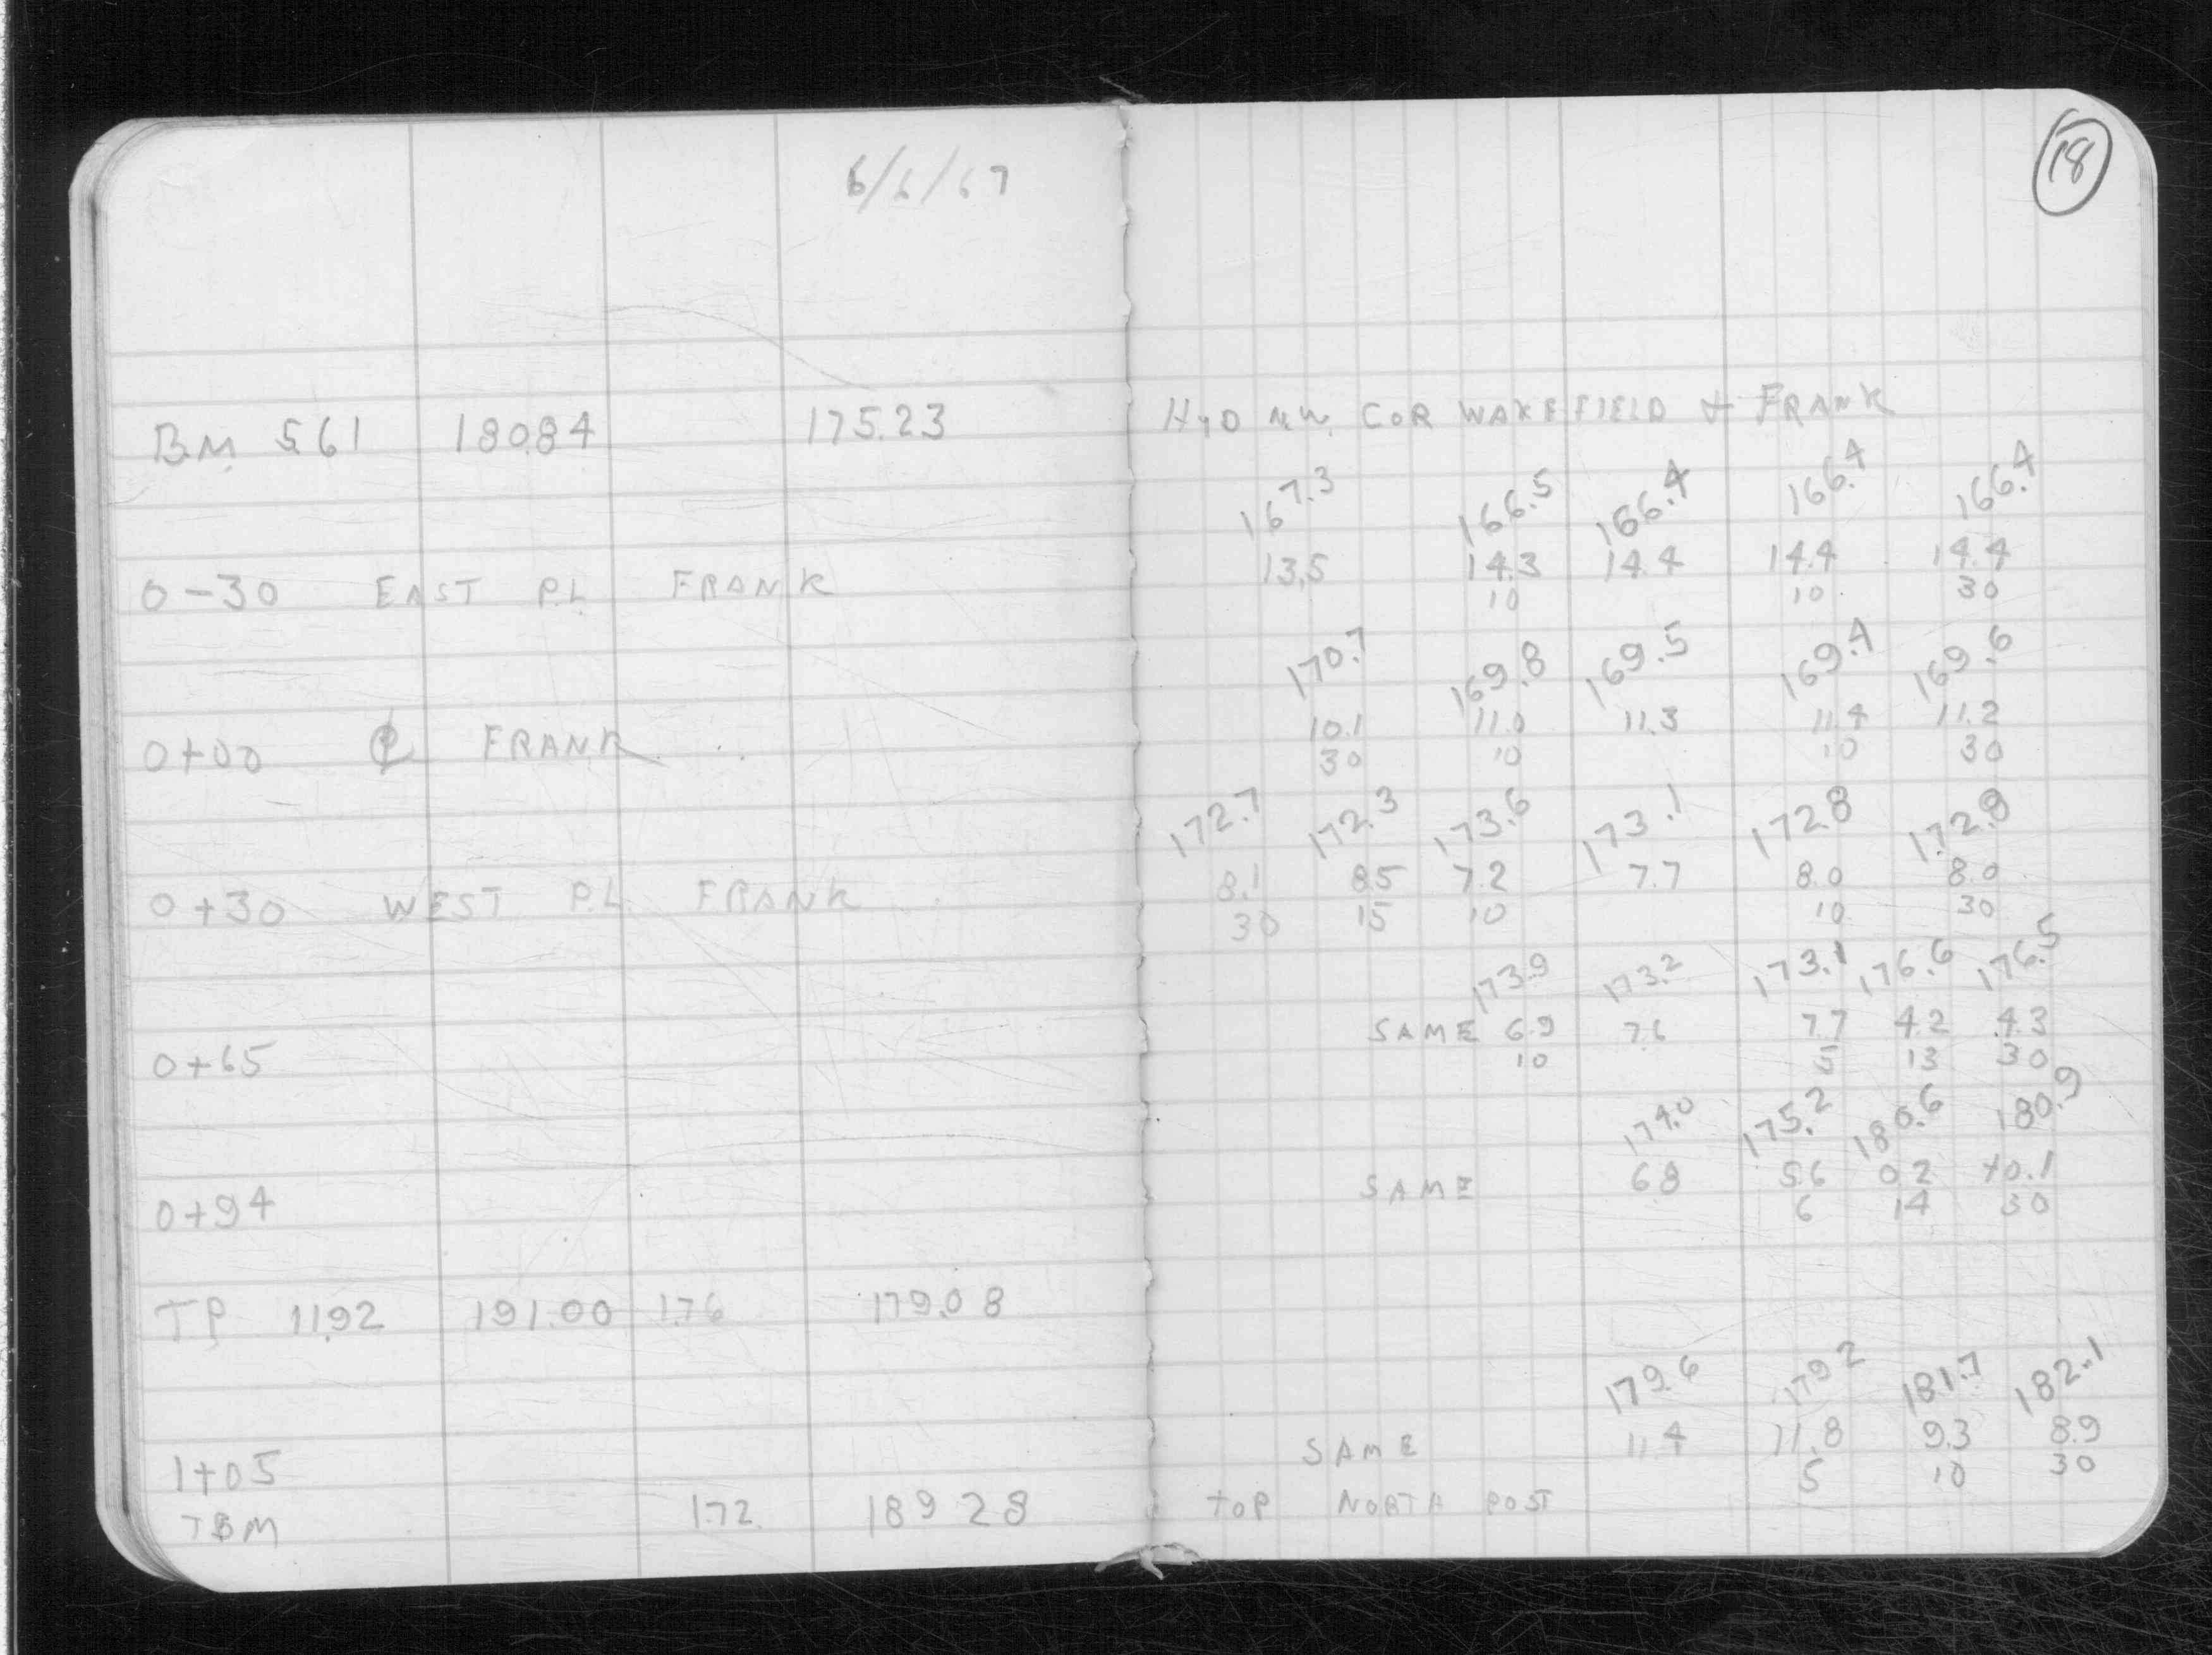 6/6/67
18
BM 5.61 180.84 175.23 HYD N.W. COR WAKEFIELD & FRANK
167.3 166.5 166.4 166.4 166.4
13.5 14.3 14.4 14.4 14.4
0-30 EAST P.L. FRANK 10 10 30
170.7 169.8 169.5 169.4 169.6
10.1 11.0 11.3 11.4 11.2
0+00 ℄ FRANK 30 10 10 30
172.7 172.3 173.6 173.1 172.8 172.8
8.1 8.5 7.2 7.7 8.0 8.0
0+30 WEST P.L. FRANK 30 15 10 10 30
173.9 173.2 173.1 176.6 176.5
SAME 6.9 7.6 7.7 4.2 4.3
0+65 10 5 13 30
174.0 175.2 180.6 180.9
SAME 6.8 5.6 0.2 +0.1
0+94 6 14 30
TP 11.92 191.00 1.76 179.08
179.6 179.2 181.7 182.1
SAME 11.4 11.8 9.3 8.9
1+05 5 10 30
TBM 1.72 189.28 TOP NORTH POST